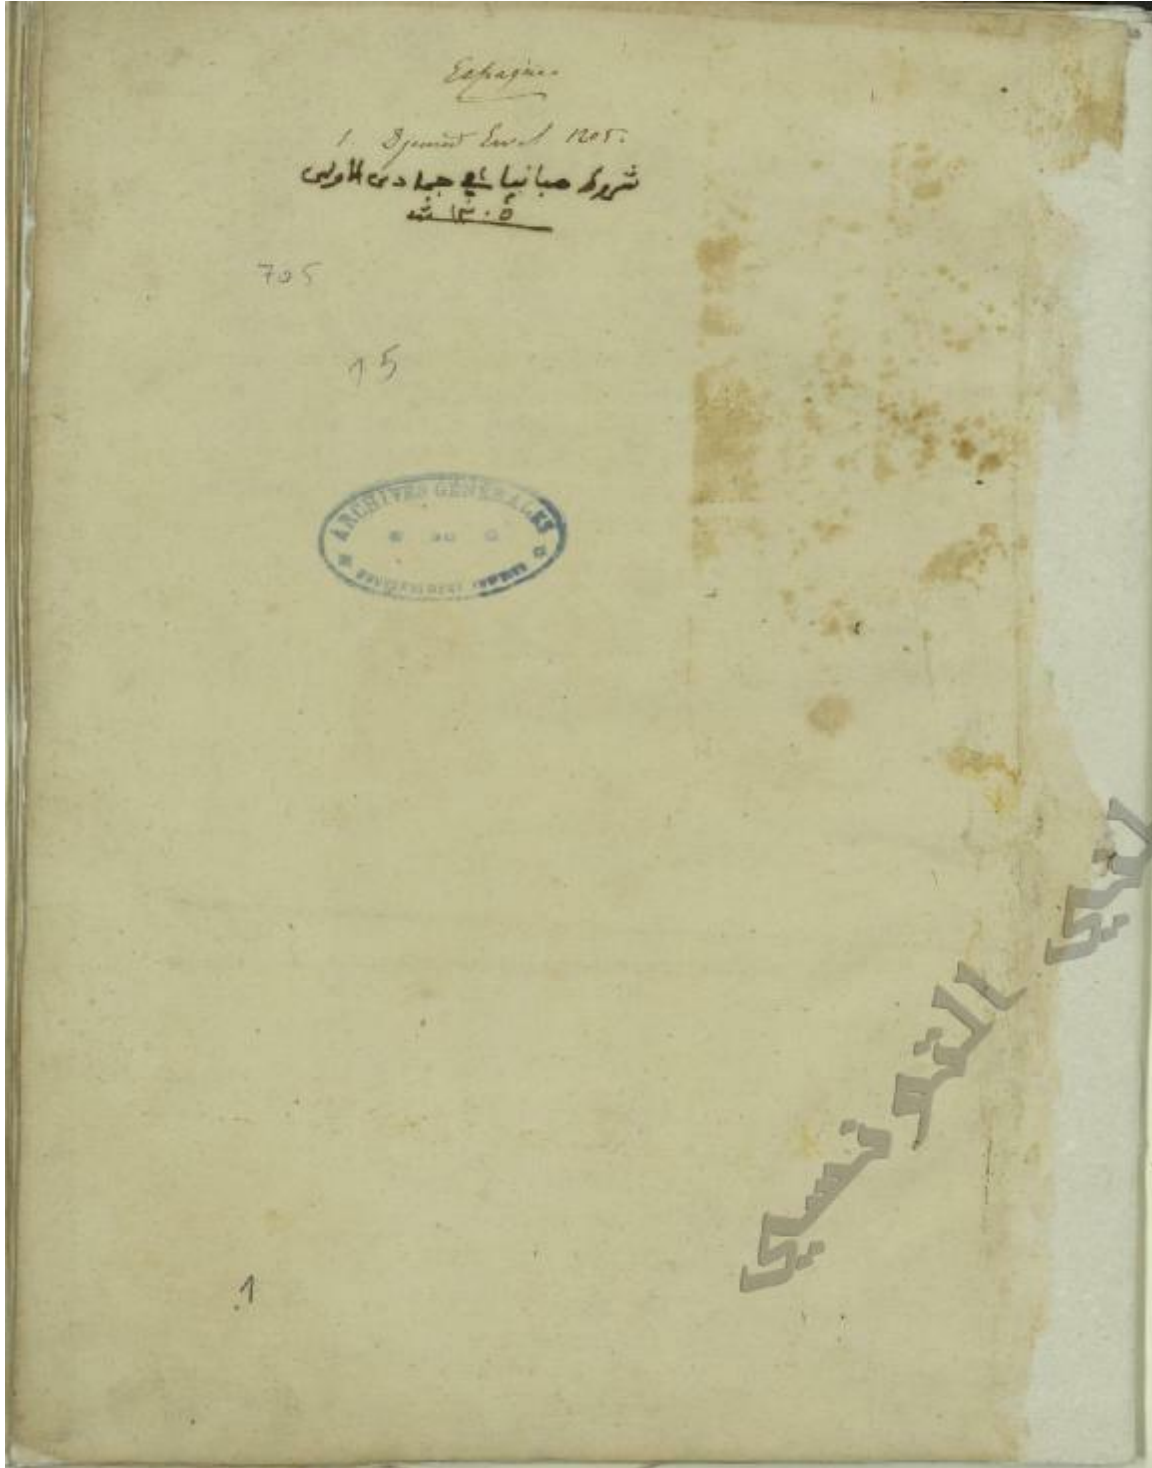 Espagne
1 Djemad Ewel 1205.
شروط صبانيا في جمادى الاولى
١٢٠٥ سنة
705
15
ARCHIVES GÉNÉRALES
التونسي
1